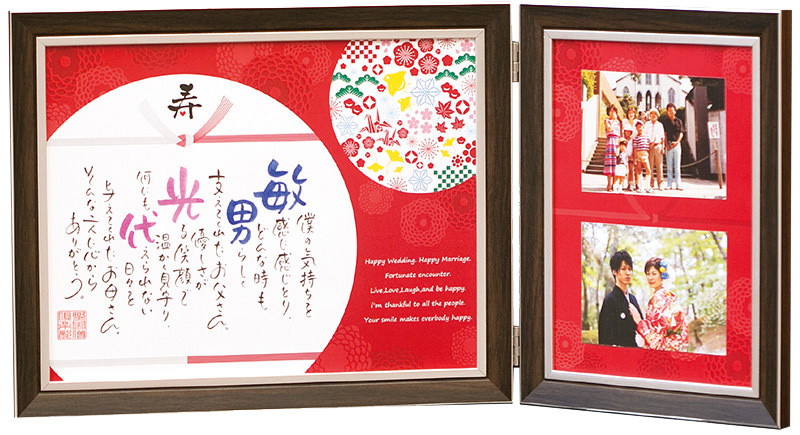 寿
僕の気持ちを
敏感に感じとり
どんな時も
男らしく
支えてくれたお父さん。
優しさが
光る笑顔で
温かく見守り、
何にも代えられない
日々を
与えてくれたお母さん。
そんな二人に心から
ありがとう。
Happy Wedding. Happy Marriage.
Fortunate encounter.
Live,Love,Laugh,and be happy.
i'm thankful to all the people.
Your smile makes everbody happy.